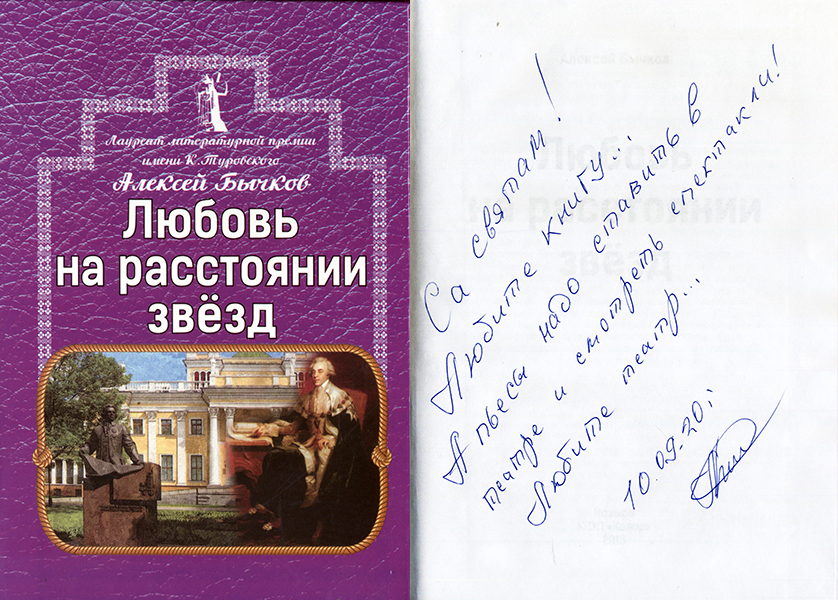 Лауреат литературной премии
имени К. Туровского
Алексей Бычков
Любовь
на расстоянии
звёзд
Алексей Бычков
Любовь
на расстоянии
звёзд
Са святам!
Любите книгу...
А пьесы надо ставить в
театре и смотреть спектакли!
Любите театр...
10.09.20г